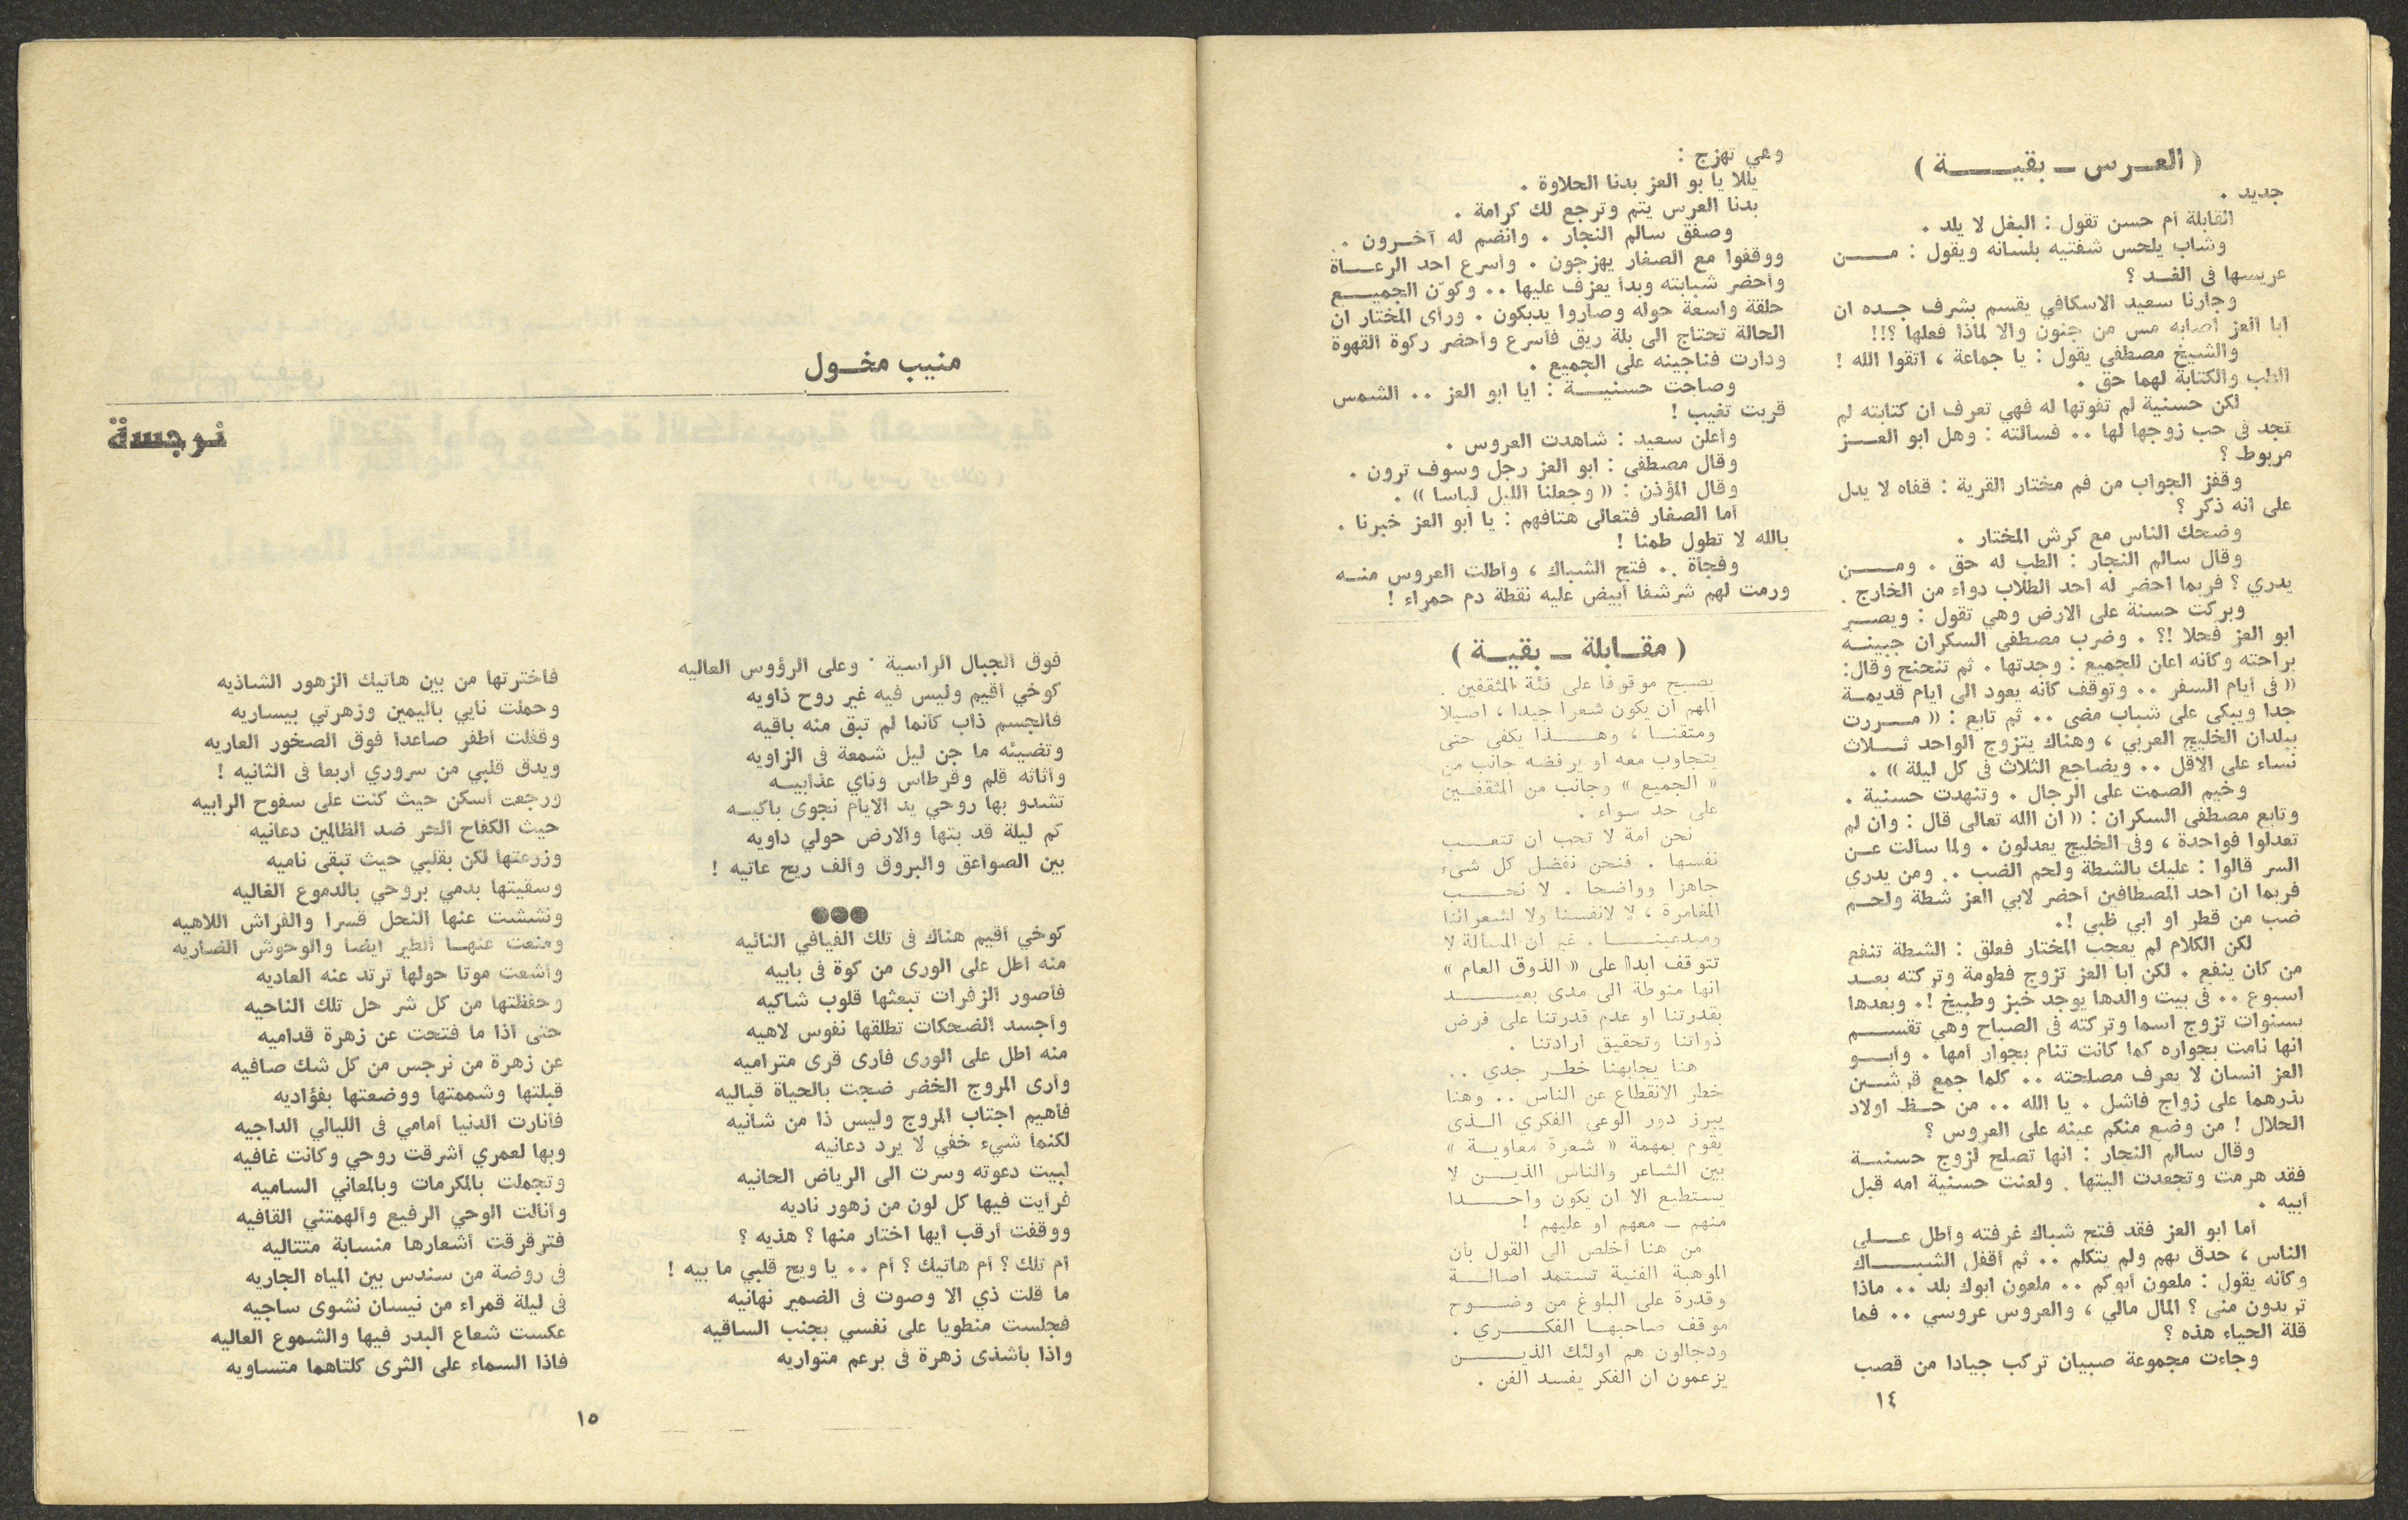 ( العـرس ـ بقيـــة )
جديد .
القابلة أم حسن تقول : البغل لا يلد .
وشاب يلحس شفتيه بلسانه ويقول : مـــن
عريسها فى الغـد ؟
وجارنا سعيد الاسكافي يقسم بشرف جـده ان
ابا العز اصابه مس من جنون والا لماذا فعلها ؟!!
والشيخ مصطفى يقول : يا جماعة ، اتقوا الله !
الطب والكتابة لهما حق .
لكن حسنية لم تفوتها له فهي تعرف ان كتابته لم
تجد فى حب زوجها لها .. فسالته : وهل ابو العـــز
مربوط ؟
وقفز الجواب من فم مختار القرية : قفاه لا يدل
على انه ذكر ؟
وضحك الناس مع كرش المختار .
وقال سالم النجار : الطب له حق . ومـــن
يدري ؟ فربما احضر له احد الطلاب دواء من الخارج .
وبركت حسنة على الارض وهي تقول : ويصـــر
ابو العز فحلا !؟ . وضرب مصطفى السكران جبينـه
براحته وكأنه اعلن للجميع : وجدتها . ثم تنحنح وقال:
(( فى أيام السفر .. وتوقف كأنه يعود الى ايام قديمـة
جدا ويبكي على شباب مضى .. ثم تابع : (( مــررت
ببلدان الخليج العربي ، وهناك يتزوج الواحد ثـــلاث
نساء على الاقل .. ويضاجع الثلاث فى كل ليلة )) .
وخيم الصمت على الرجال . وتنهدت حسنية .
وتابع مصطفى السكران : (( ان الله تعالى قال : وان لم
تعدلوا فواحدة ، وفى الخليج يعدلون . ولما سألت عـن
السر قالوا : عليك بالشطة ولحم الضب .. ومن يدري
فربما ان احد المصطافين أحضر لابي العز شطة ولحـم
ضب من قطر او ابي ظبي !.
لكن الكلام لم يعجب المختار فعلق : الشطة تنفع
من كان ينفع . لكن ابا العز تزوج فطومة وتركته بعـد
اسبوع .. فى بيت والدها يوجد خبز وطبيخ !. وبعدها
بسنوات تزوج اسما وتركته فى الصباح وهي تقســم
انها نامت بجواره كما كانت تنام بجوار أمها . وأبـــو
العز انسان لا يعرف مصلحته .. كلما جمع قرشـــين
بذرهما على زواج فاشل . يا الله .. من حـظ اولاد
الحلال ! من وضع منكم عينه على العروس ؟
وقال سالم النجار : انها تصلح لزوج حسنيـة
فقد هرمت وتجعدت اليتها . ولعنت حسنية امه قبل
أبيه .
أما ابو العز فقد فتح شباك غرفته وأطل عـــلى
الناس ، حدق بهم ولم يتكلم .. ثم أقفل الشبـــاك
وكأنه يقول : ملعون أبوكم .. ملعون ابوك بلد .. ماذا
تريدون منى ؟ المال مالي ، والعروس عروسي .. فما
قلة الحياء هذه ؟
وجاءت مجموعة صبيان تركب جيادا من قصب
١٤
وهي تهزج :
يللا يا بو العز بدنا الحلاوة .
بدنا العرس يتم وترجع لك كرامة .
وصفق سالم النجار . وانضم له آخـرون .
ووقفوا مع الصغار يهزجون . وأسرع احد الرعــاة
وأحضر شبابته وبدأ يعزف عليها .. وكوّن الجميـــع
حلقة واسعة حوله وصاروا يدبكون . ورأى المختار ان
الحالة تحتاج الى بلة ريق فأسرع وأحضر ركوة القهوة
ودارت فناجينه على الجميع .
وصاحت حسنيـــة : ايا ابو العز .. الشمس
قربت تغيب !
وأعلن سعيد : شاهدت العروس .
وقال مصطفى : ابو العز رجل وسوف ترون .
وقال المؤذن : (( وجعلنا الليل لباسا )) .
أما الصغار فتعالى هتافهم : يا ابو العز خبرنا .
بالله لا تطول طمنا !
وفجأة .. فتح الشباك ، وأطلت العروس منـه
ورمت لهم شرشفا أبيض عليه نقطة دم حمراء !
( مقـابلة ـ بقيـة )
يصبح موقوفا على فئة المثقفين .
المهم ان يكون شعرا جيدا ، اصيلا
ومتقنـا ، وهـــذا يكفي حتى
يتجاوب معه او يرفضه جانب من
« الجميع » وجانب من المثقفـين
على حد سواء .
نحن امة لا تحب ان تتعـــب
نفسها . فنحن نفضل كل شيء
جاهزا وواضحا . لا نحـــب
المغامرة ، لا لانفسنا ولا لشعرائنا
ومبدعينـــا . غير ان المسألة لا
تتوقف ابدا على « الذوق العام »
انها منوطة الى مدى بعيـــد
بقدرتنا او عدم قدرتنا على فرض
ذواتنا وتحقيق ارادتنا .
هنا يجابهنا خطـر جدي ..
خطر الانقطاع عن الناس .. وهنا
يبرز دور الوعي الفكري الـذى
يقوم بمهمة « شعرة معاويـة »
بين الشاعر والناس الذيــن لا
يستطيع الا ان يكون واحـــدا
منهم ـ معهم او عليهم !
من هنا أخلص الى القول بأن
الموهبة الفنية تستمد اصالـــة
وقدرة على البلوغ من وضـــوح
موقف صاحبهـا الفكـــري .
ودجالون هم اولئك الذيـــن
يزعمون ان الفكر يفسد الفن .
منيب مخـول
نرجسة
فوق الجبال الراسية . وعلى الرؤوس العاليه
كوخي أقيم وليس فيه غير روح ذاويه
فالجسم ذاب كأنما لم تبق منه باقيه
وتضيئه ما جن ليل شمعة فى الزاويه
وأثاثه قلم وقرطاس وناي عذابيـه
تشدو بها روحي يد الايام نجوى باكيـه
كم ليلة قد بتها والارض حولي داويه
بين الصواعق والبروق وألف ريح عاتيه !
كوخي أقيم هناك فى تلك الفيافي النائيه
منه اطل على الورى من كوة فى بابيه
فأصور الزفرات تبعثها قلوب شاكيه
وأجسد الضحكات تطلقها نفوس لاهيه
منه اطل على الورى فأرى قرى متراميه
وأرى المروج الخضر ضجت بالحياة قباليه
فأهيم اجتاب المروج وليس ذا من شانيه
لكنما شيء خفي لا يرد دعانيه
لبيت دعوته وسرت الى الرياض الحانيه
فرأيت فيها كل لون من زهور ناديه
ووقفت أرقب ايها اختار منها ؟ هذيه ؟
أم تلك ؟ أم هاتيك ؟ أم .. يا ويح قلبي ما بيه !
ما قلت ذي الا وصوت فى الضمير نهانيه
فجلست منطويا على نفسي بجنب الساقيه
واذا بأشذى زهرة فى برعم متواريه
فاخترتها من بين هاتيك الزهور الشاذيه
وحملت نايي باليمين وزهرتي بيساريه
وقفلت أطفر صاعدا فوق الصخور العاريه
ويدق قلبي من سروري أربعا فى الثانيه !
ورجعت أسكن حيث كنت على سفوح الرابيه
حيث الكفاح الحر ضد الظالمين دعانيه
وزرعتها لكن بقلبي حيث تبقى ناميه
وسقيتها بدمي بروحي بالدموع الغاليه
ونششت عنها النحل قسرا والفراش اللاهيه
ومنعت عنهـا الطير ايضا والوحوش الضاريه
وأشعت موتا حولها ترتد عنه العاديه
وحفظتها من كل شر حل تلك الناحيه
حتى اذا ما فتحت عن زهرة قداميه
عن زهرة من نرجس من كل شك صافيه
قبلتها وشممتها ووضعتها بفؤاديه
فأنارت الدنيا أمامي فى الليالي الداجيه
وبها لعمري أشرقت روحي وكانت غافيه
وتجملت بالمكرمات وبالمعاني الساميه
وأنالت الوحي الرفيع والهمتني القافيه
فترقرقت أشعارها منسابة متتاليه
فى روضة من سندس بين المياه الجاريه
فى ليلة قمراء من نيسان نشوى ساجيه
عكست شعاع البدر فيها والشموع العاليه
فاذا السماء على الثرى كلتاهما متساويه
١٥